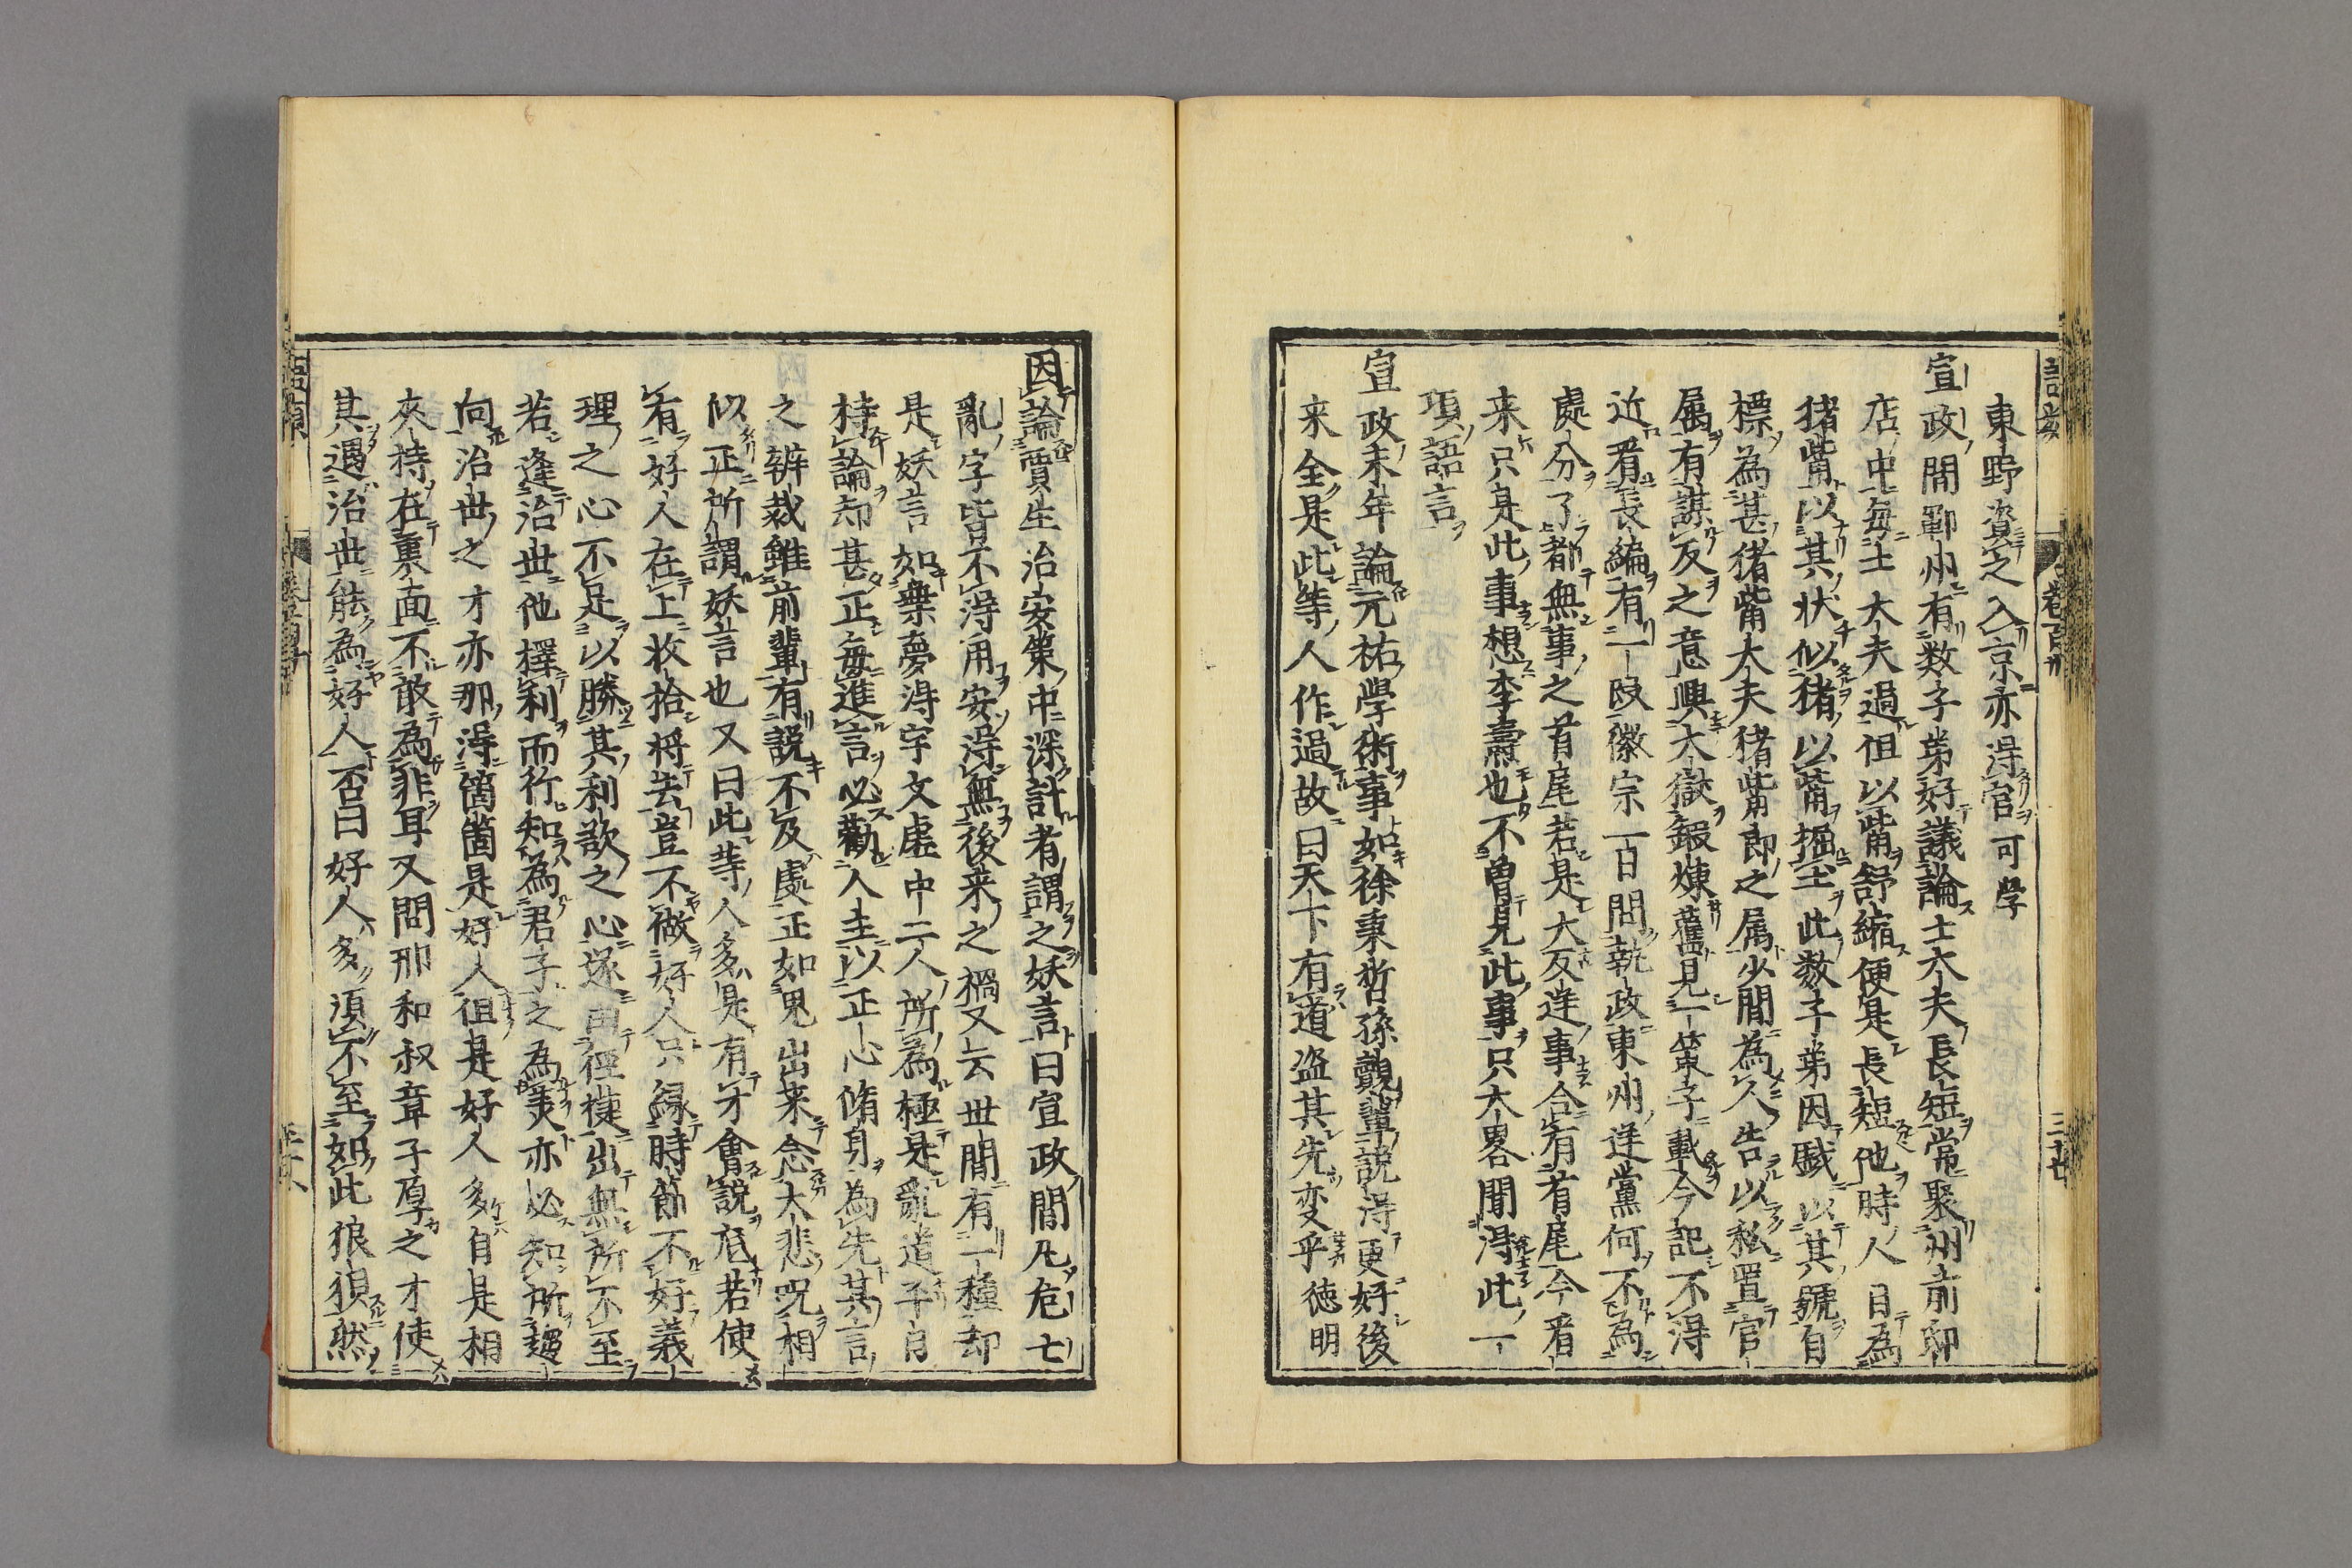 東野資之入京亦得官可學
宣政間鄆州有数子弟好議論士大夫長短常聚州前邸
店中每士大夫過但以觜舒縮便是長短他時人目為
猪觜以其状似猪以觜掘土此数子弟因戯以其號自
標為甚猪觜大夫猪觜郎之属少間為人告以私置官
属有謀反之意興大獄鍜煉舊見一策子載今記不得
近看長編有一段徽宗一日問執政東州逆黨何不為
處分了都無事之首尾若是大反逆事合有首尾今看
来只是此事想李燾也不曾見此事只大畧聞得此一
項語言
宣政末年論元祐學術事如徐秉哲孫覿輩說得更好後
来全是此等人作過故曰天下有道盗其先変乎 徳明
因論賈生治安策中深計者謂之妖言曰宣政間凡危亡
亂字皆不得用安得無後来之禍又云世間有一種却
是妖言如叅夢得宇文虚中二人所為極是亂道平自
持論却甚正每進言必勸人主以正心脩身為先其言
之辨裁雖前輩有說不及處正如鬼出来念大悲呪相
似正所謂妖言也又曰此等人多是有才會說底若使
有好人在上收拾将去豈不做好人只縁時節不好義
理之心不足以勝其利欲之心遂由徑捷出無所不至
若逢治世他擇利而行知為君子之為美亦必知所趨
向治世之才亦那得箇箇是好人但是好人多自是相
夾持在裏面不敢為非耳又問邢和叔章子厚之才使
其遇治世能為好人否曰好人多須不至如此狼狽然